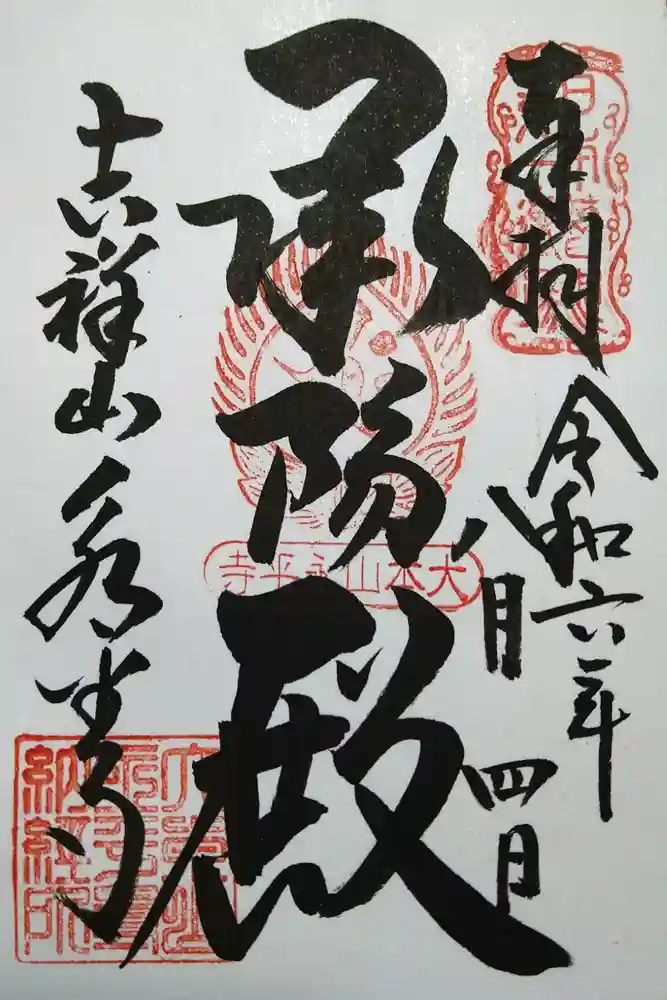 奉拝
令和六年
八月四日
承陽殿
大本山永平寺
吉祥山永平寺
納経所